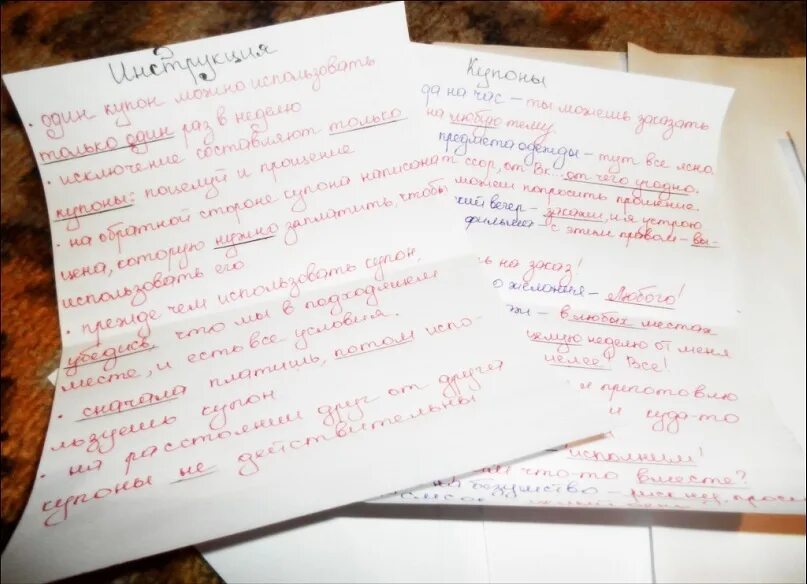 Инструкция
• один купон можно использовать
только один раз в неделю
• исключение составляют только
купоны: поцелуй и прощение
• на обратной стороне купона написана
цена, которую нужно заплатить, чтобы
использовать его
• прежде чем использовать купон,
убедись, что мы в подходящем
месте, и есть все условия.
• сначала платишь, потом испо-
льзуешь купон
• на расстоянии друг от друга
купоны не действительны
Купоны
да на час – ты можешь заказать
на любую тему
предмета одежды – тут все ясно
т ссор, от от чего угодно.
можем попросить прощение.
вечер – закажи, и я устрою
фильма – с этим правом – вы-
ь на заказ!
о желания – Любого!
жи – в любых местах
целую неделю от меня
Все!
я приготовлю
и куда-то
исполним!
м что-то вместе?
на безумство –